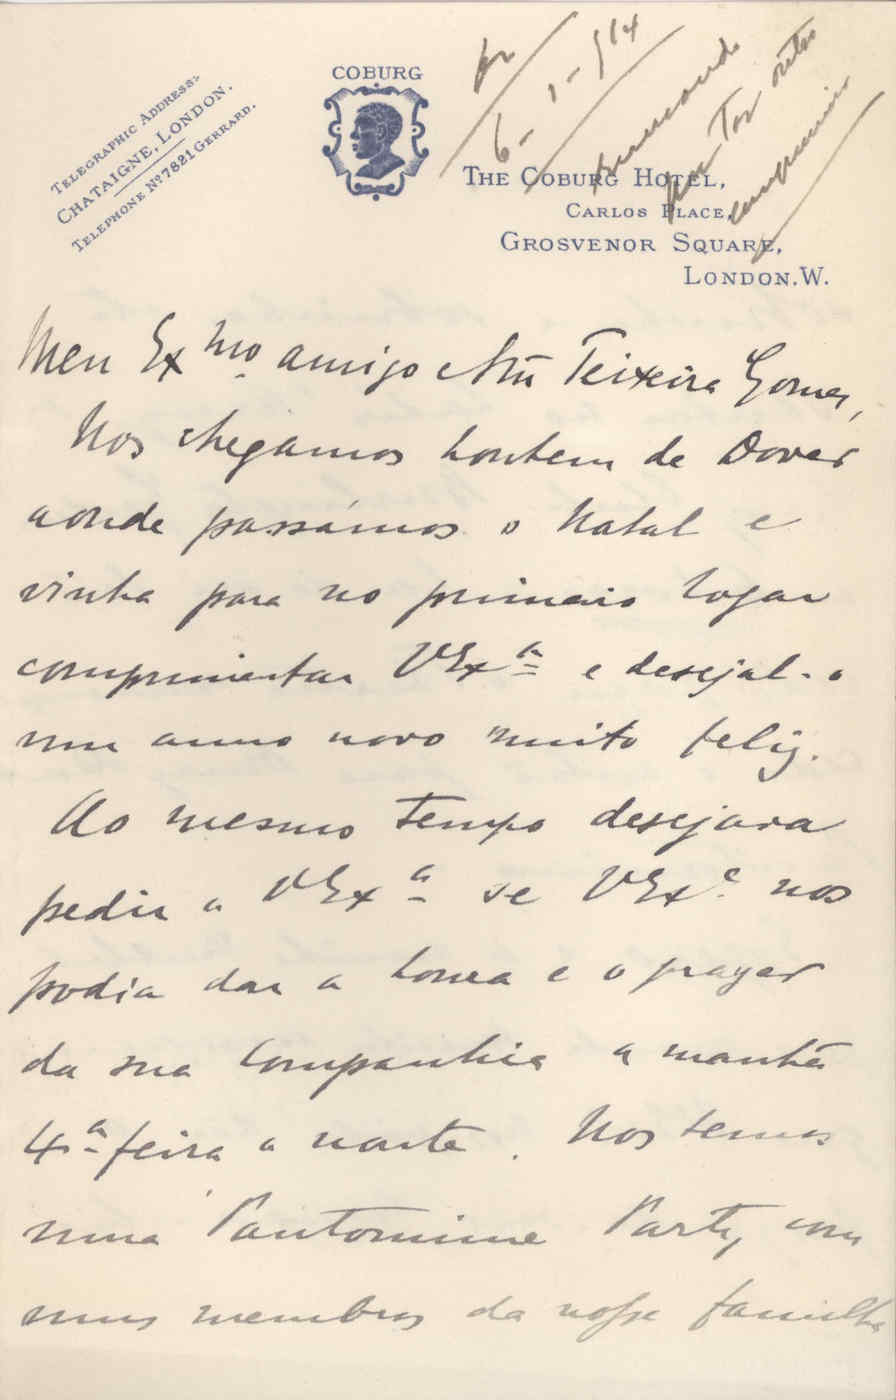 Telegraphic Address:
Chataigne, London.
Telephone Nº 7821 Gerrard.
COBURG
6-1-914
por Ter outro
The Coburg Hotel,
Carlos Place,
Grosvenor Square,
London. W.
Meu Exmo. amigo Snr Teixeira Gomes,
Nos chegamos hontem de Dover
aonde passámos o Natal e
vinha para no primeiro logar
comprimentar VExa e desejal-o
um anno novo muito feliz.
Ao mesmo tempo desejava
pedir a VExa se VExa. nos
podia dar a honra e o prazer
da sua Companhia a manhã
4a-feira a noute. Nos temos
uma Pantomime Party com
uns membros da nossa familha